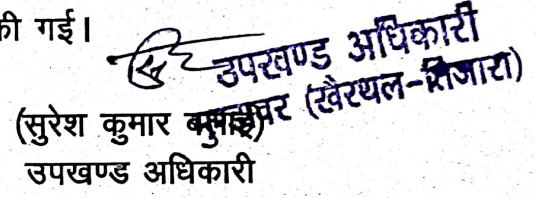 की गई।
उपखण्ड अधिकारी
(खैरथल-तिजारा)
(सुरेश कुमार
उपखण्ड अधिकारी